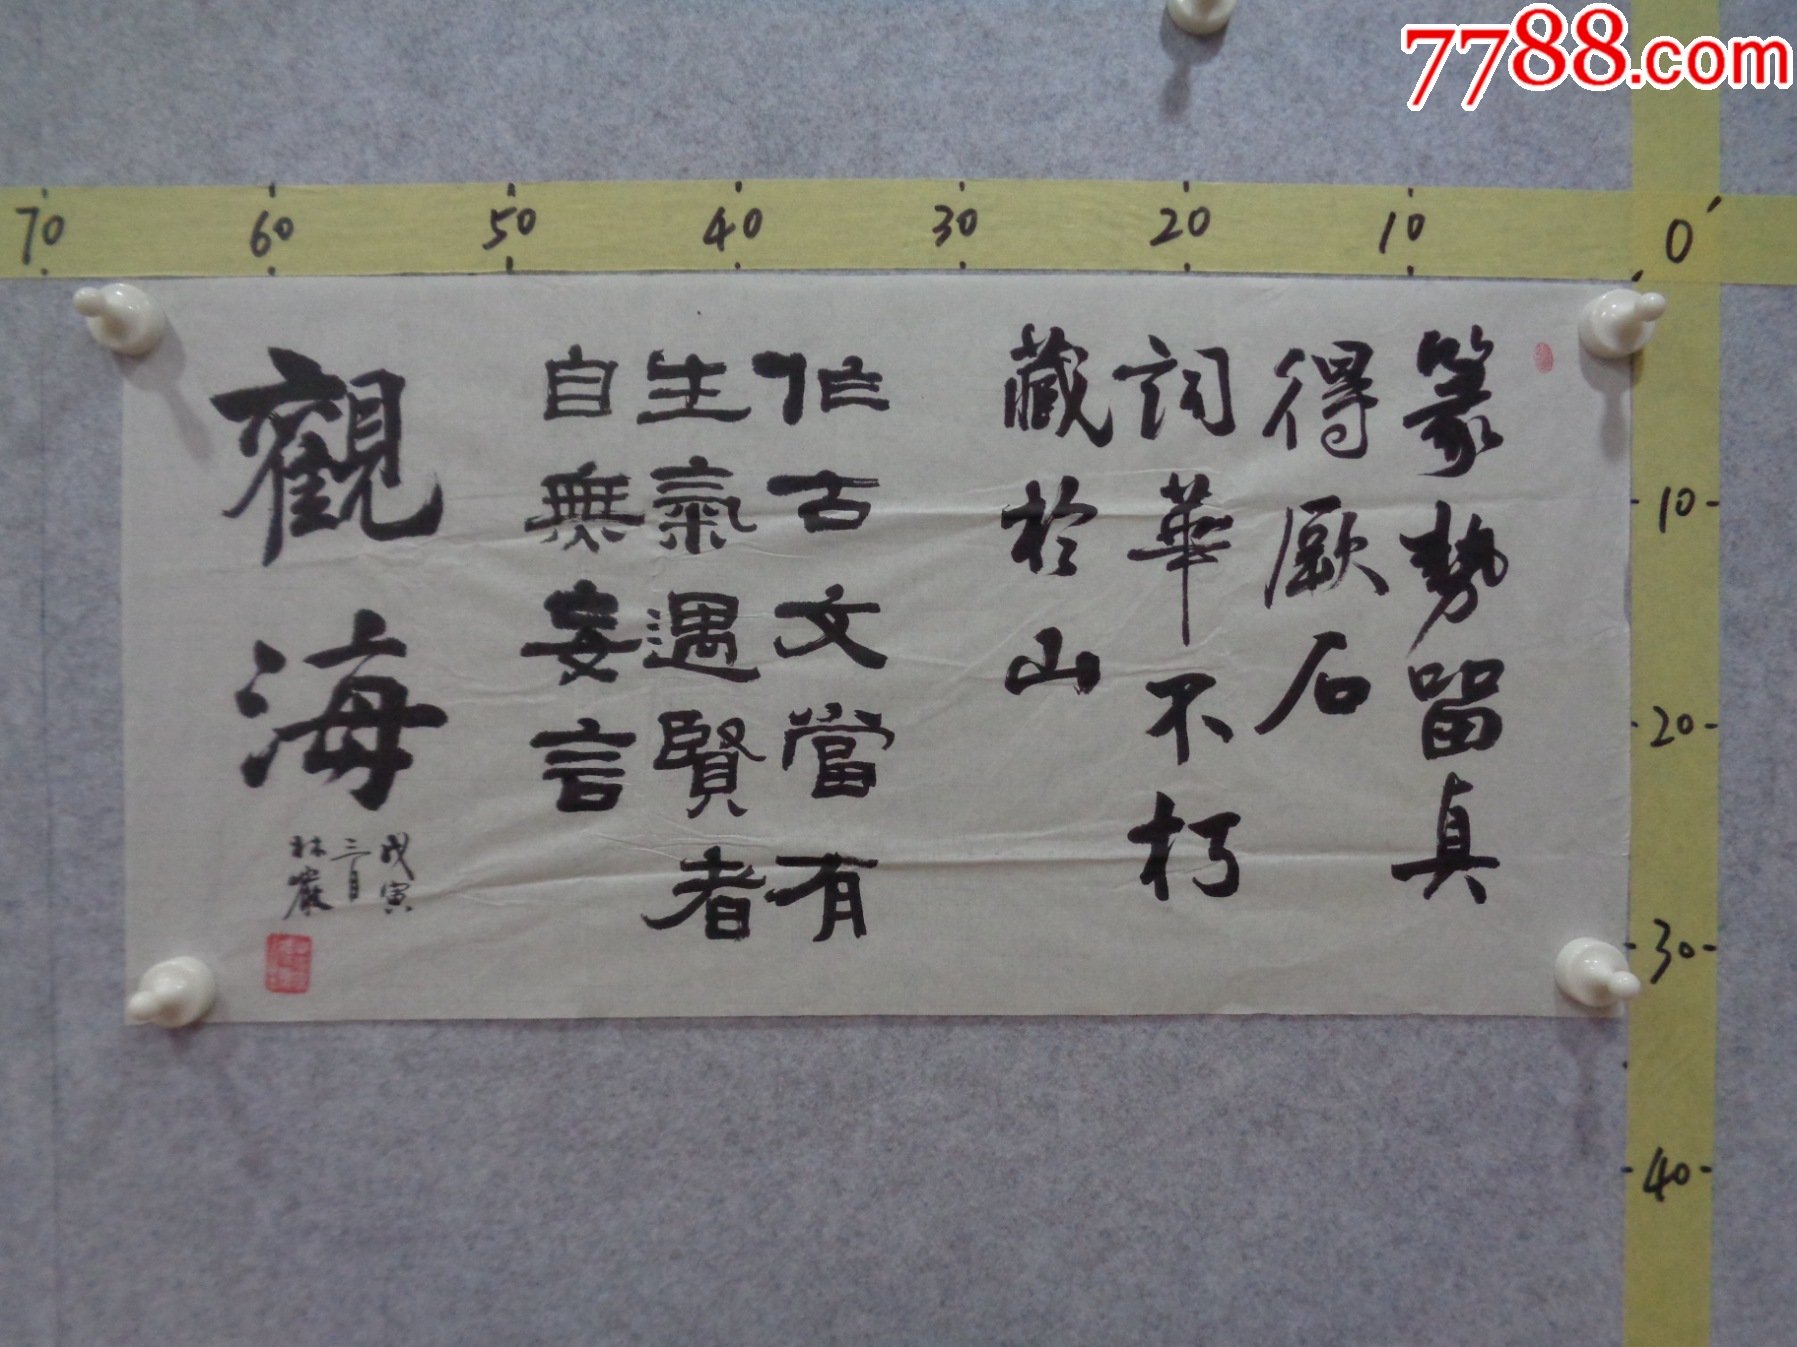 7788.com
70 60 50 40 30 20 10 0
10
20
30
40
篆勢留真
得厥石
詞華不朽
藏於山
作古文當有
生氣遇賢者
自無妄言
觀海
戊寅
三月
林巖